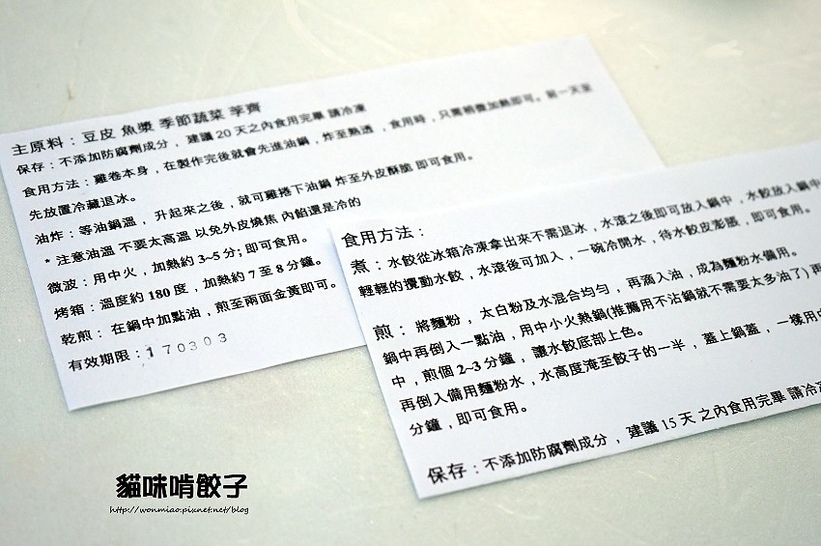 主原料：豆皮 魚漿 季節蔬菜 荸薺
保存：不添加防腐劑成分，建議 20 天之內食用完畢 請冷凍
食用方法：雞卷本身，在製作完後就會先進油鍋，炸至熟透，食用時，只需稍微加熱即可。前一天至
先放置冷藏退冰。
油炸：等油鍋溫，升起來之後，就可雞捲下油鍋 炸至外皮酥脆 即可食用。
* 注意油溫 不要太高溫 以免外皮燒焦 內餡還是冷的
微波：用中火，加熱約 3~5 分; 即可食用。
烤箱：溫度約 180 度，加熱約 7 至 8 分鐘。
乾煎：在鍋中加點油，煎至兩面金黃即可。
有效期限：170303
食用方法：
煮：水餃從冰箱冷凍拿出來不需退冰，水滾之後即可放入鍋中，水餃放入鍋中
輕輕的攪動水餃，水滾後可加入，一碗冷開水，待水餃皮澎脹，即可食用。
煎：將麵粉，太白粉及水混合均勻，再滴入油，成為麵粉水備用。
鍋中再倒入一點油，用中小火熱鍋(推薦用不沾鍋就不需要太多油了)再
中，煎個 2~3 分鐘，讓水餃底部上色。
再倒入備用麵粉水，水高度淹至餃子的一半，蓋上鍋蓋，一樣用中
分鐘，即可食用。
保存：不添加防腐劑成分，建議 15 天 之內食用完畢 請冷凍
貓咪啃餃子
http://wonmiao.pixnet.net/blog